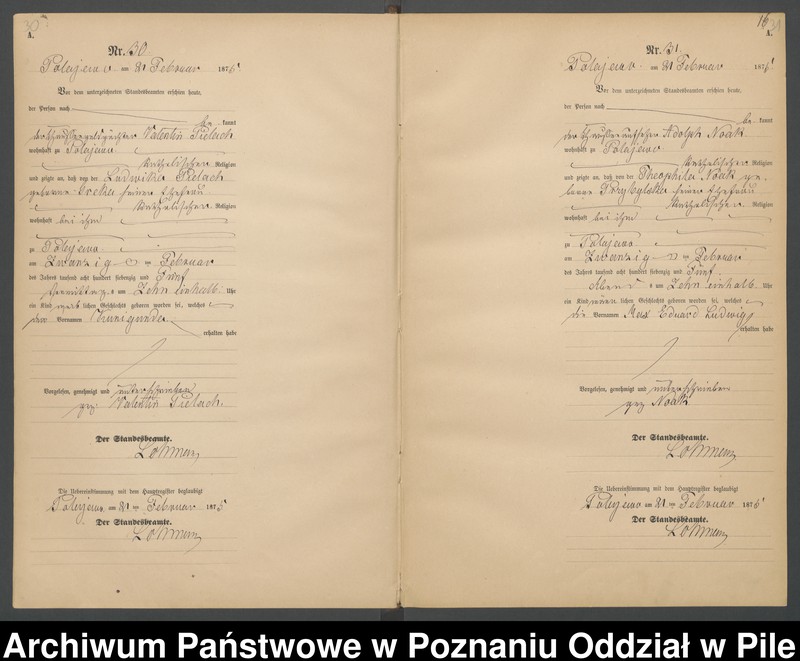 30
A.
Nr. 30
Polajewo am 21 Februar 1875
Vor dem unterzeichneten Standesbeamten erschien heute,
der Person nach
be kannt
der Chausseegeldpächter Valentin Pielach
wohnhaft zu Polajewo
katholischer Religion
und zeigte an, daß von der Ludwika Pielach
geborene seiner Ehefrau
katholischer Religion
wohnhaft bei ihm
zu Polajewo
am Zwanzig ten Februar
des Jahres tausend acht hundert siebenzig und Fünf
Vormittags um Zehn einhalb Uhr
ein Kind weib lichen Geschlechts geboren worden sei, welches
den Vornamen Kunigunde
erhalten habe
Vorgelesen, genehmigt und unterschrieben
gez Valentin Pielach
Der Standesbeamte.
Die Uebereinstimmung mit dem Hauptregister beglaubigt
Polajewo am 21 ten Februar 1875
Der Standesbeamte.
16
31
A.
Nr. 31
Polajewo am 21 Februar 1875
Vor dem unterzeichneten Standesbeamten erschien heute,
der Person nach
be kannt
der Chausseeaufseher Adolph Noak
wohnhaft zu Polajewo
katholischer Religion
und zeigte an, daß von der Theophila Noak ge
borene Przybylska seiner Ehefrau
katholischer Religion
wohnhaft bei ihm
zu Polajewo
am Zwanzig ten Februar
des Jahres tausend acht hundert siebenzig und Fünf
Abend s um Zehn einhalb Uhr
ein Kind männ lichen Geschlechts geboren worden sei, welches
die Vornamen Max Eduard Ludwig
erhalten habe
Vorgelesen, genehmigt und unterschrieben
gez Noak
Der Standesbeamte.
Die Uebereinstimmung mit dem Hauptregister beglaubigt
Polajewo am 21 ten Februar 1875
Der Standesbeamte.
Archiwum Państwowe w Poznaniu Oddział w Pile